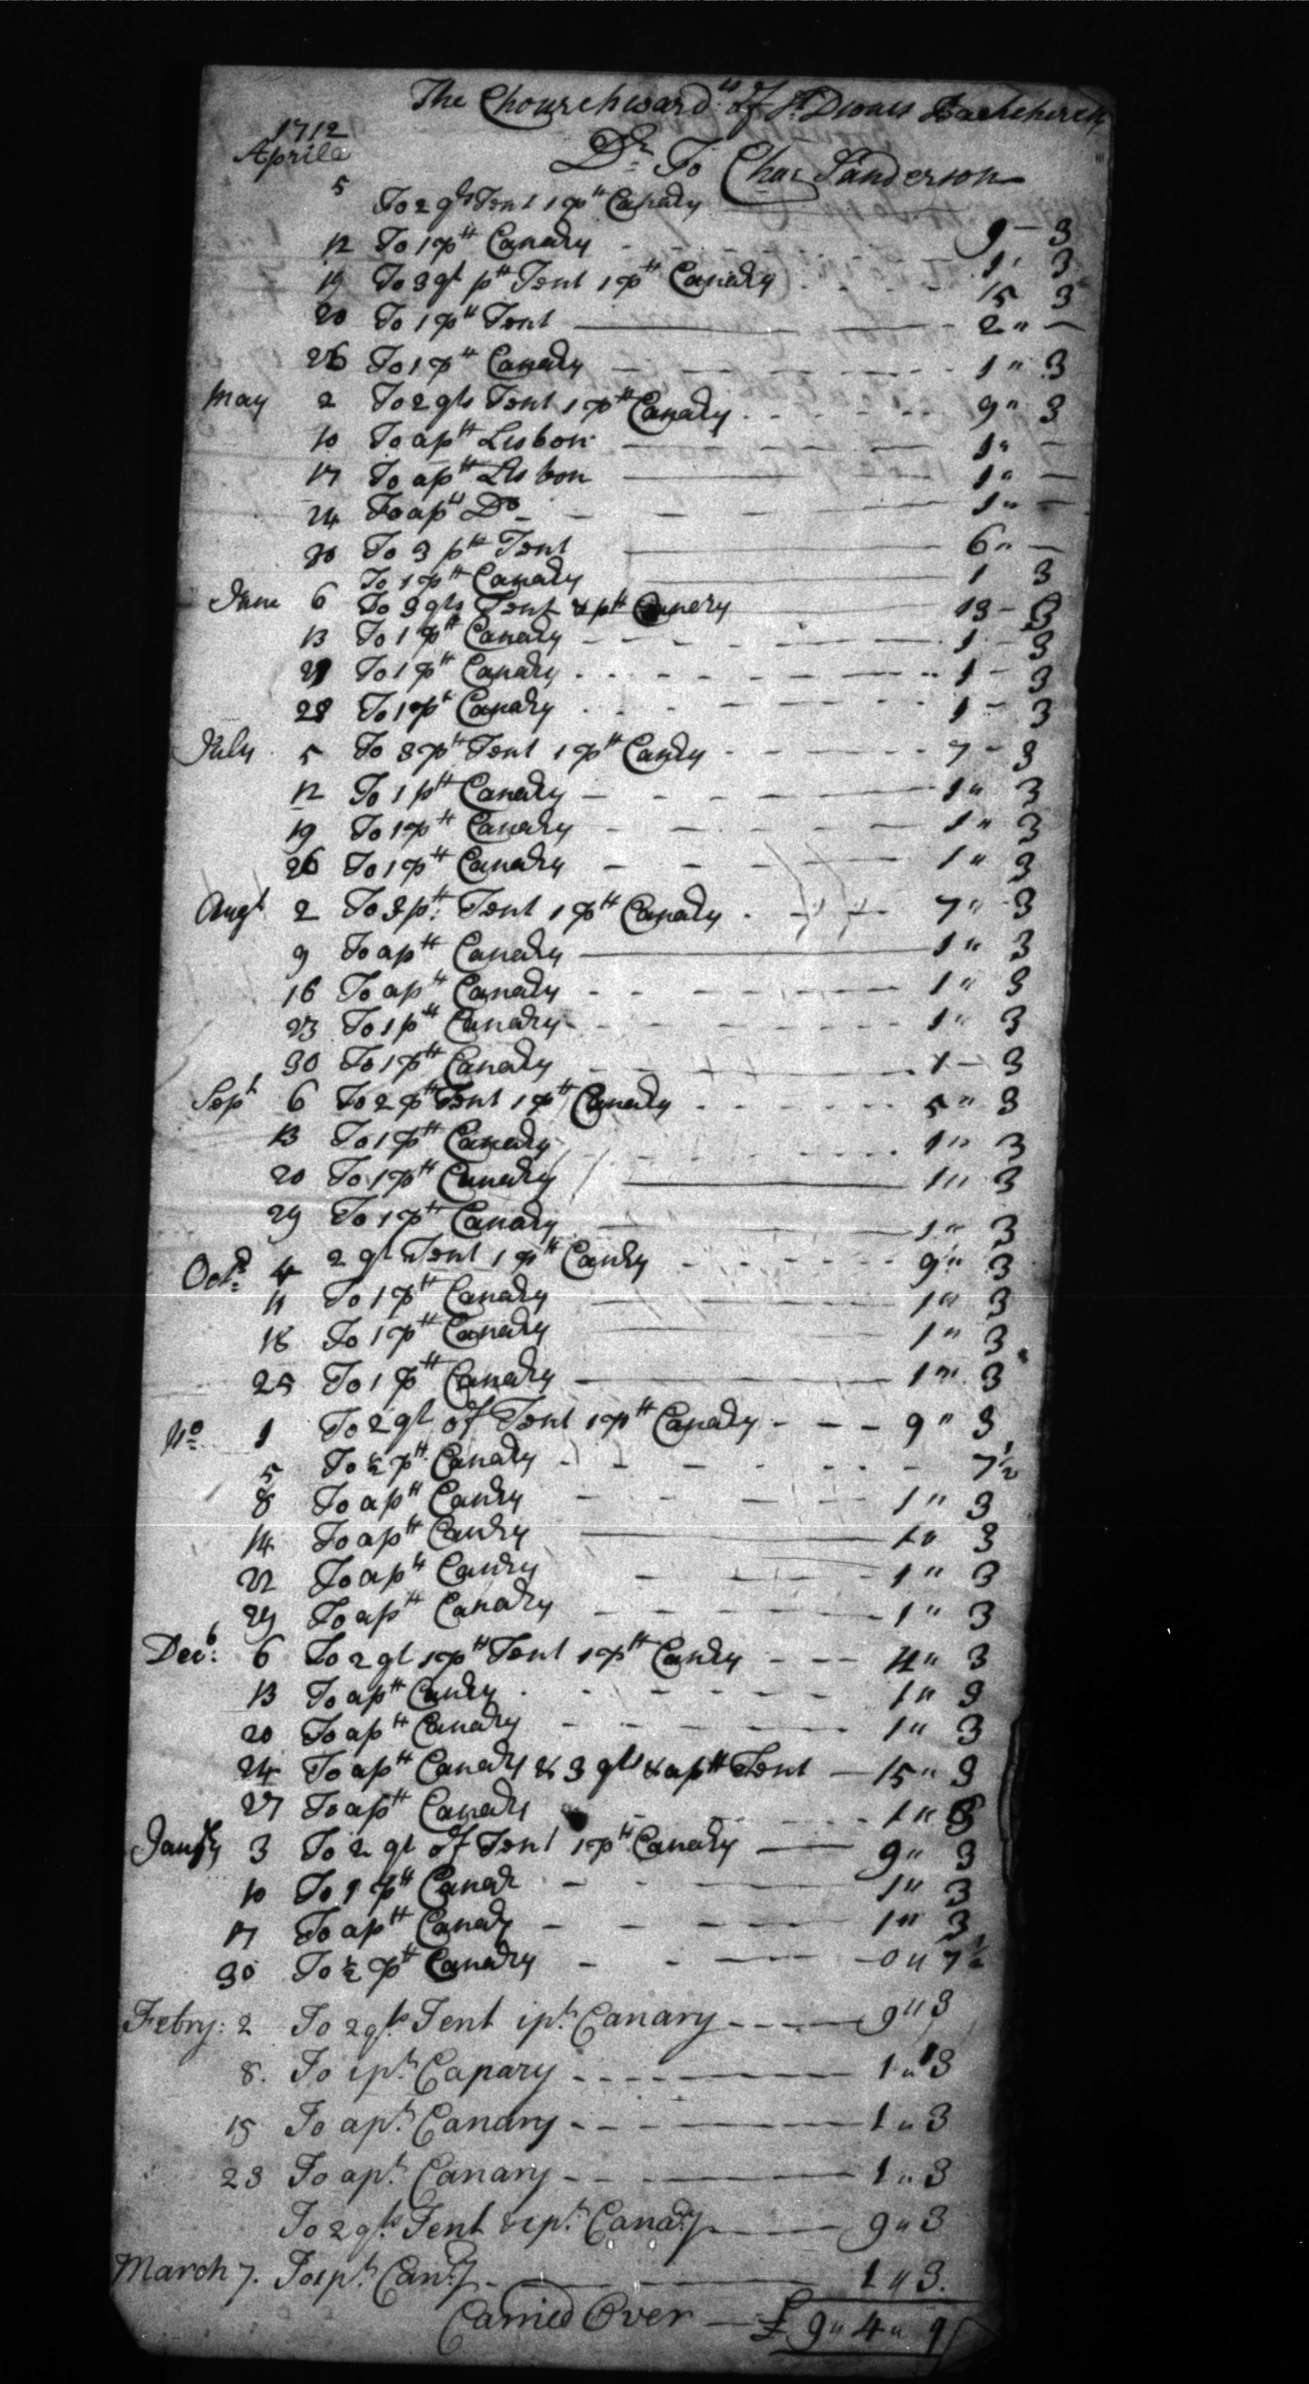 The Chourchward:ns of St Dionis Backchurch
1712
Aprile Dr To Char Sanderson
5 To 2 gls Tent 1 ptt Canary 9 - 3
12 To 1 ptt Canary 1 " 3
19 To 3 gl ptt Tent 1 ptt Canary 15 3
20 To 1 ptt Tent 2 " -
26 To 1 ptt Canary 1 " 3
May 2 To 2 gls Tent 1 ptt Canary 9 " 3
10 To a ptt Lisbon 1 " -
17 To a ptt Lisbon 1 " -
24 To a ptt Do 1 " -
30 To 3 ptt Tent 6 " -
To 1 ptt Canary 1 3
June 6 To 3 gls Tent & ptt Canery 13 - 3
13 To 1 ptt Canary 1 - 3
21 To 1 ptt Canary 1 - 3
28 To 1 pt Canary 1 - 3
July 5 To 3 ptt Tent 1 ptt Canry 7 - 3
12 To 1 ptt Canary 1 " 3
19 To 1 ptt Canary 1 " 3
26 To 1 ptt Canary 1 " 3
Augt 2 To 3 ptt: Tent 1 ptt Canary 7 " 3
9 To a ptt Canary 1 " 3
16 To a ptt Canary 1 " 3
23 To 1 ptt Canary 1 " 3
30 To 1 ptt Canary 1 - 3
Sept 6 To 2 ptt Tent 1 ptt Canary 5 " 3
13 To 1 ptt Canary 1 " 3
20 To 1 ptt Canary 1 " 3
29 To 1 ptt Canary 1 " 3
Octr 4 2 gl Tent 1 ptt Canry 9 " 3
11 To 1 ptt Canary 1 " 3
18 To 1 ptt Canary 1 " 3
25 To 1 ptt Canary 1 " 3
No 1 To 2 gl of Tent 1 ptt Canary 9 " 3
5 To ½ ptt Canary 7½
8 To a ptt Canry 1 " 3
14 To a ptt Canry 1 " 3
22 To a ptt Canry 1 " 3
29 To a ptt Canary 1 " 3
Decb: 6 To 2 gl 1 ptt Tent 1 ptt Canry 11 " 3
13 To a ptt Canry 1 " 3
20 To a ptt Canary 1 " 3
24 To a ptt Canary & 3 gls & a ptt Tent 15 " 3
27 To a ptt Canary 1 " 3
Janry 3 To 2 gl of Tent 1 ptt Canary 9 " 3
10 To 1 ptt Canar 1 " 3
17 To a ptt Canary 1 " 3
30 To ½ ptt Canary 0 " 7½
Febry: 2 To 2 gls Tent 1 pt Canary 9 " 3
8. To 1 pt Canary 1 " 3
15 To a pt Canary 1 " 3
23 To a pt Canary 1 " 3
To 2 gls Tent & 1 pt Canary 9 " 3
March 7. To 1 pt Canry 1 " 3.
Carried Over £ 9 " 4 " 9